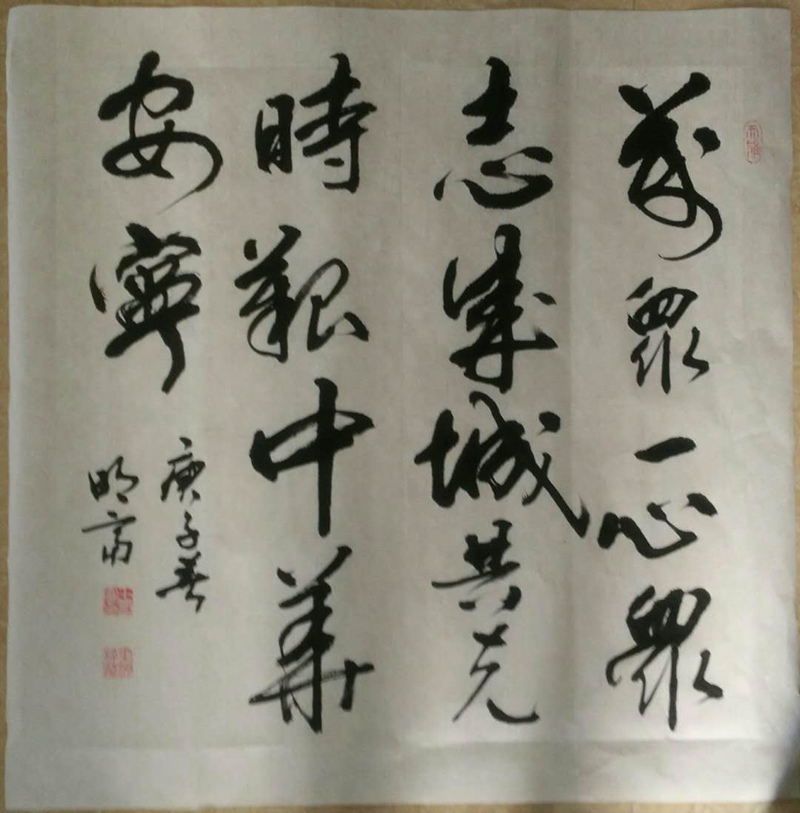 萬眾一心眾
志成城共克
時艱中華
安寧
庚子春
明齋